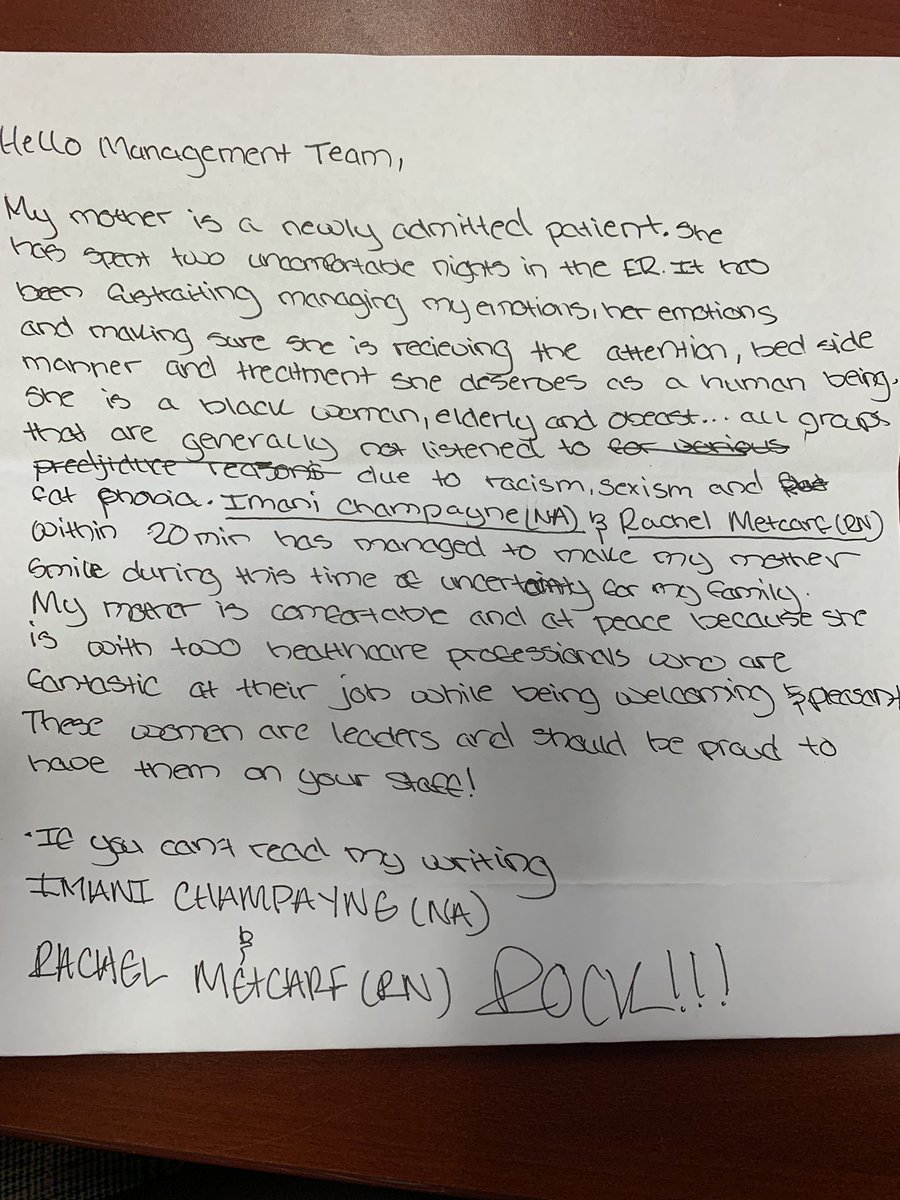 Hello Management Team,
My mother is a newly admitted patient. She
has spent two uncomfortable nights in the ER. It has
been fustraiting managing my emotions, her emotions
and making sure she is recieving the attention, bed side
manner and treatment she deserves as a human being.
She is a black woman, elderly and obeast... all groups
that are generally not listened to for various
predjidure reasons due to racism, sexism and fat
fat phobia. Imani Champayne (NA) & Rachel Metcarf (RN)
within 20 min has managed to make my mother
smile during this time of uncertainty for my family.
My mother is comfortable and at peace because she
is with two healthcare professionals who are
fantastic at their job while being welcoming & pleasant
These women are leaders and should be proud to
have them on your staff!
·If you can't read my writing
IMANI CHAMPAYNE (NA)
&
RACHEL METCARF (RN) ROCK!!!